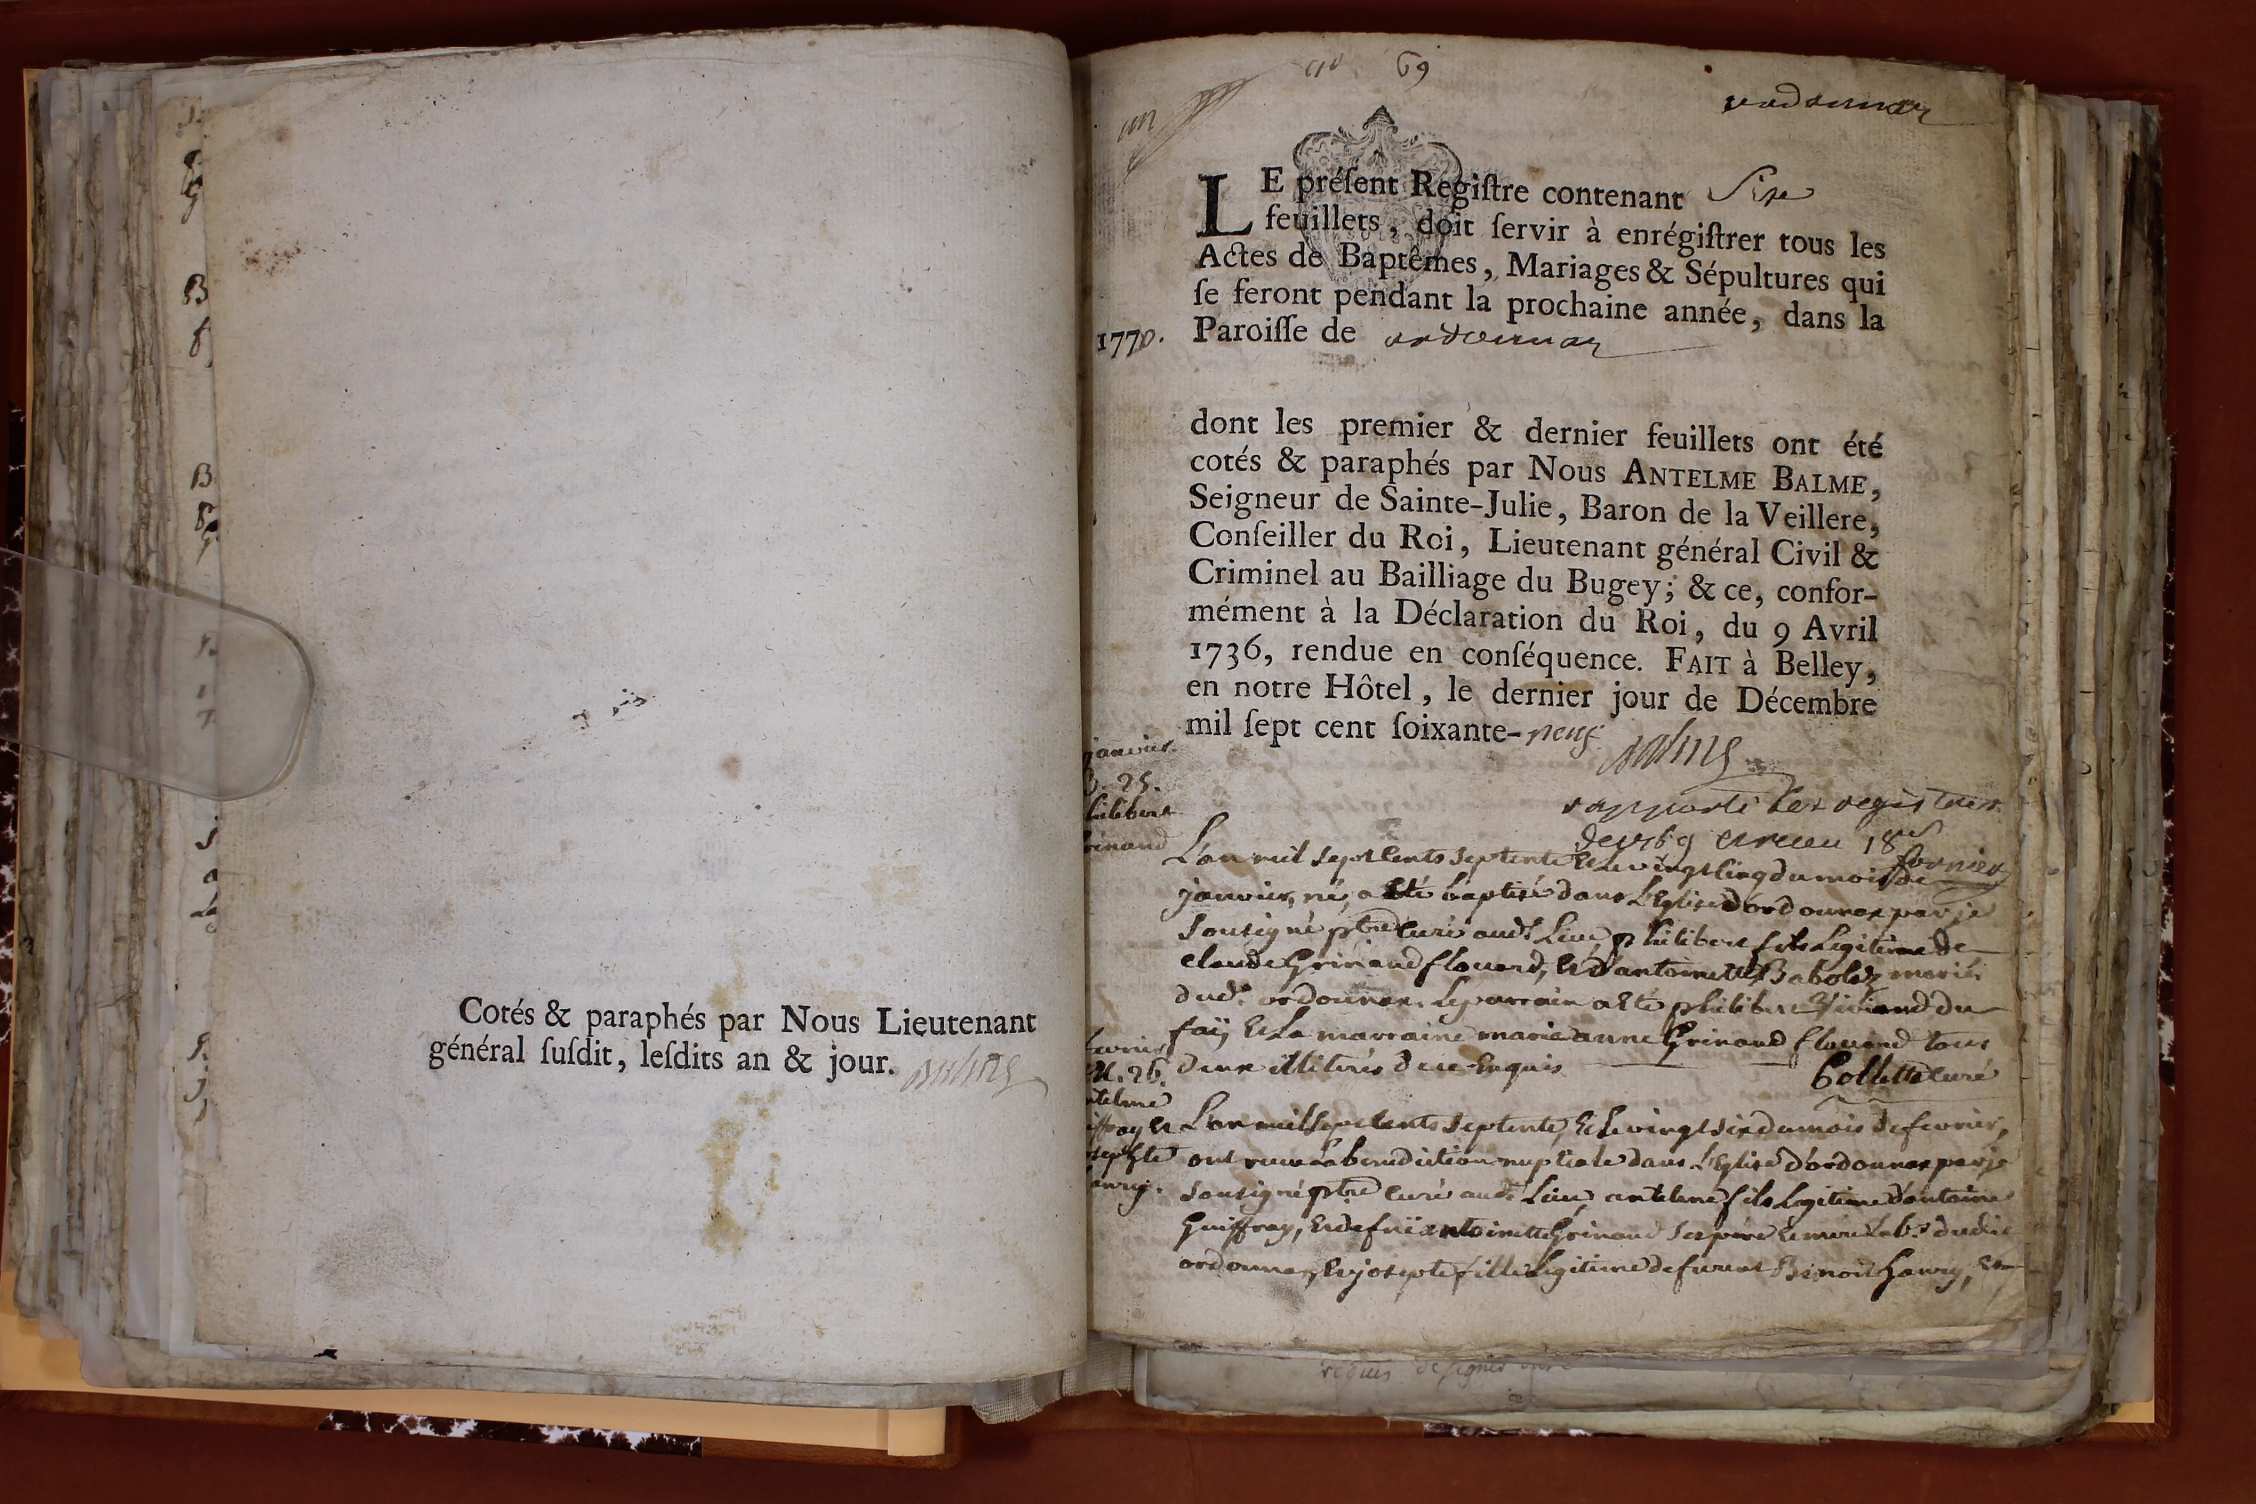 Cotés & paraphés par Nous Lieutenant
général ſuſdit, leſdits an & jour. Balme
69
ordonnax
LE préſent Regiſtre contenant Six
feuillets, doit ſervir à enrégiſtrer tous les
Actes de Baptêmes, Mariages & Sépultures qui
ſe feront pendant la prochaine année, dans la
1770. Paroiſſe de ordonnax
dont les premier & dernier feuillets ont été
cotés & paraphés par Nous ANTELME BALME,
Seigneur de Sainte-Julie, Baron de la Veillere,
Conſeiller du Roi, Lieutenant général Civil &
Criminel au Bailliage du Bugey; & ce, confor-
mément à la Déclaration du Roi, du 9 Avril
1736, rendue en conſéquence. FAIT à Belley,
en notre Hôtel, le dernier jour de Décembre
mil ſept cent ſoixante-neuf
Balme
rapporté les registres
de 1769 et receu 18s
fornier
janvier.
B. 25.
hilibert
rinand
L'an mil sept cents septente et le vingt cinq du mois de
janvier, né, a été baptisé dans l'Eglise d'ordonnax par je
soussigné ptre curé audt Lieu, philibert fils legitime de
claude Grinand flouard, et d'antoinette Babolaz mariés
dudt ordonnax. Le parrain a été philibert du
faÿ et La marraine marie anne Grinand flouard tous
deux illiterés de ce Enquis
Collette curé
fevrier
M. 26.
ntelme
iffray et
osephte
avry.
L'an mil sept cents septente, et Le vingt six du mois de fevrier,
ont receu La benediction nuptiale dans L'Eglise d'ordonnax par je
soussigné ptre curé audt Lieu, antelme fils Legitime d'antoine
Guiffray, et de füe antoinette Grinand ses père et mère Labrs dudit
ordonnax, et josephte fille Legitime de furent Benoit havry, et
requis de signer